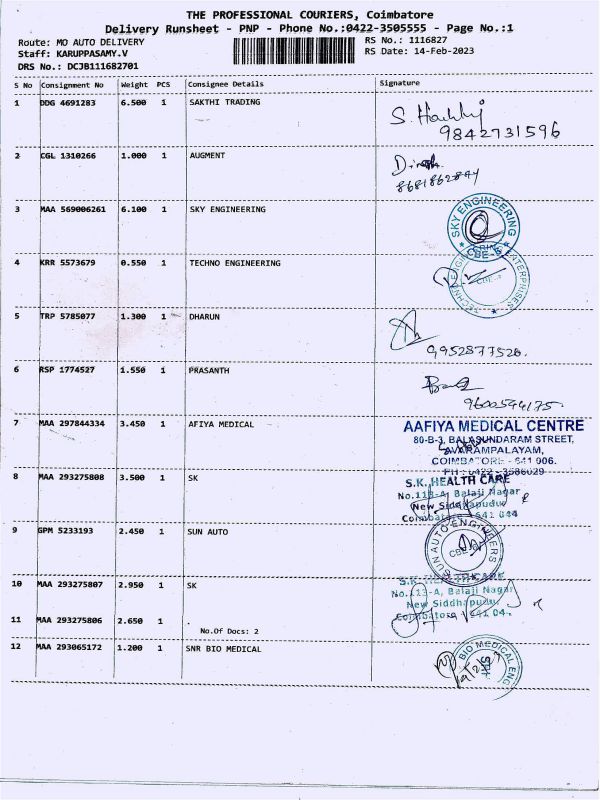 THE PROFESSIONAL COURIERS, Coimbatore
Delivery Runsheet - PNP - Phone No.:0422-3505555 - Page No.:1
Route: MO AUTO DELIVERY
RS No.: 1116827
Staff: KARUPPASAMY.V
RS Date: 14-Feb-2023
DRS No.: DCJB111682701
S No Consignment No Weight PCS Consignee Details Signature
1 DDG 4691283 6.500 1 SAKTHI TRADING
9842731596
2 CGL 1310266 1.000 1 AUGMENT
3 MAA 569006261 6.100 1 SKY ENGINEERING
SKY ENGINEERING
CBE-6
4 KRR 5573679 0.550 1 TECHNO ENGINEERING
5 TRP 5785077 1.300 1 DHARUN
9952877526.
6 RSP 1774527 1.550 1 PRASANTH
9600544175.
7 MAA 297844334 3.450 1 AFIYA MEDICAL
AAFIYA MEDICAL CENTRE
80-B-3, BALASUNDARAM STREET,
AVARAMPALAYAM,
COIMBATORE - 641 006.
PH : 0422 - 3586029
8 MAA 293275808 3.500 1 SK
S.K. HEALTH CARE
No.113-A, Balaji Nagar
New Siddhapudur
Coimbatore 641 044
9 GPM 5233193 2.450 1 SUN AUTO
SUN AUTO ENGINEERS
CBE
10 MAA 293275807 2.950 1 SK
S.K. HEALTH CARE
No.113-A, Balaji Nagar
New Siddhapudur
Coimbatore 641 04
11 MAA 293275806 2.650 1 .
No.Of Docs: 2
12 MAA 293065172 1.200 1 SNR BIO MEDICAL
BIO MEDICAL ENG